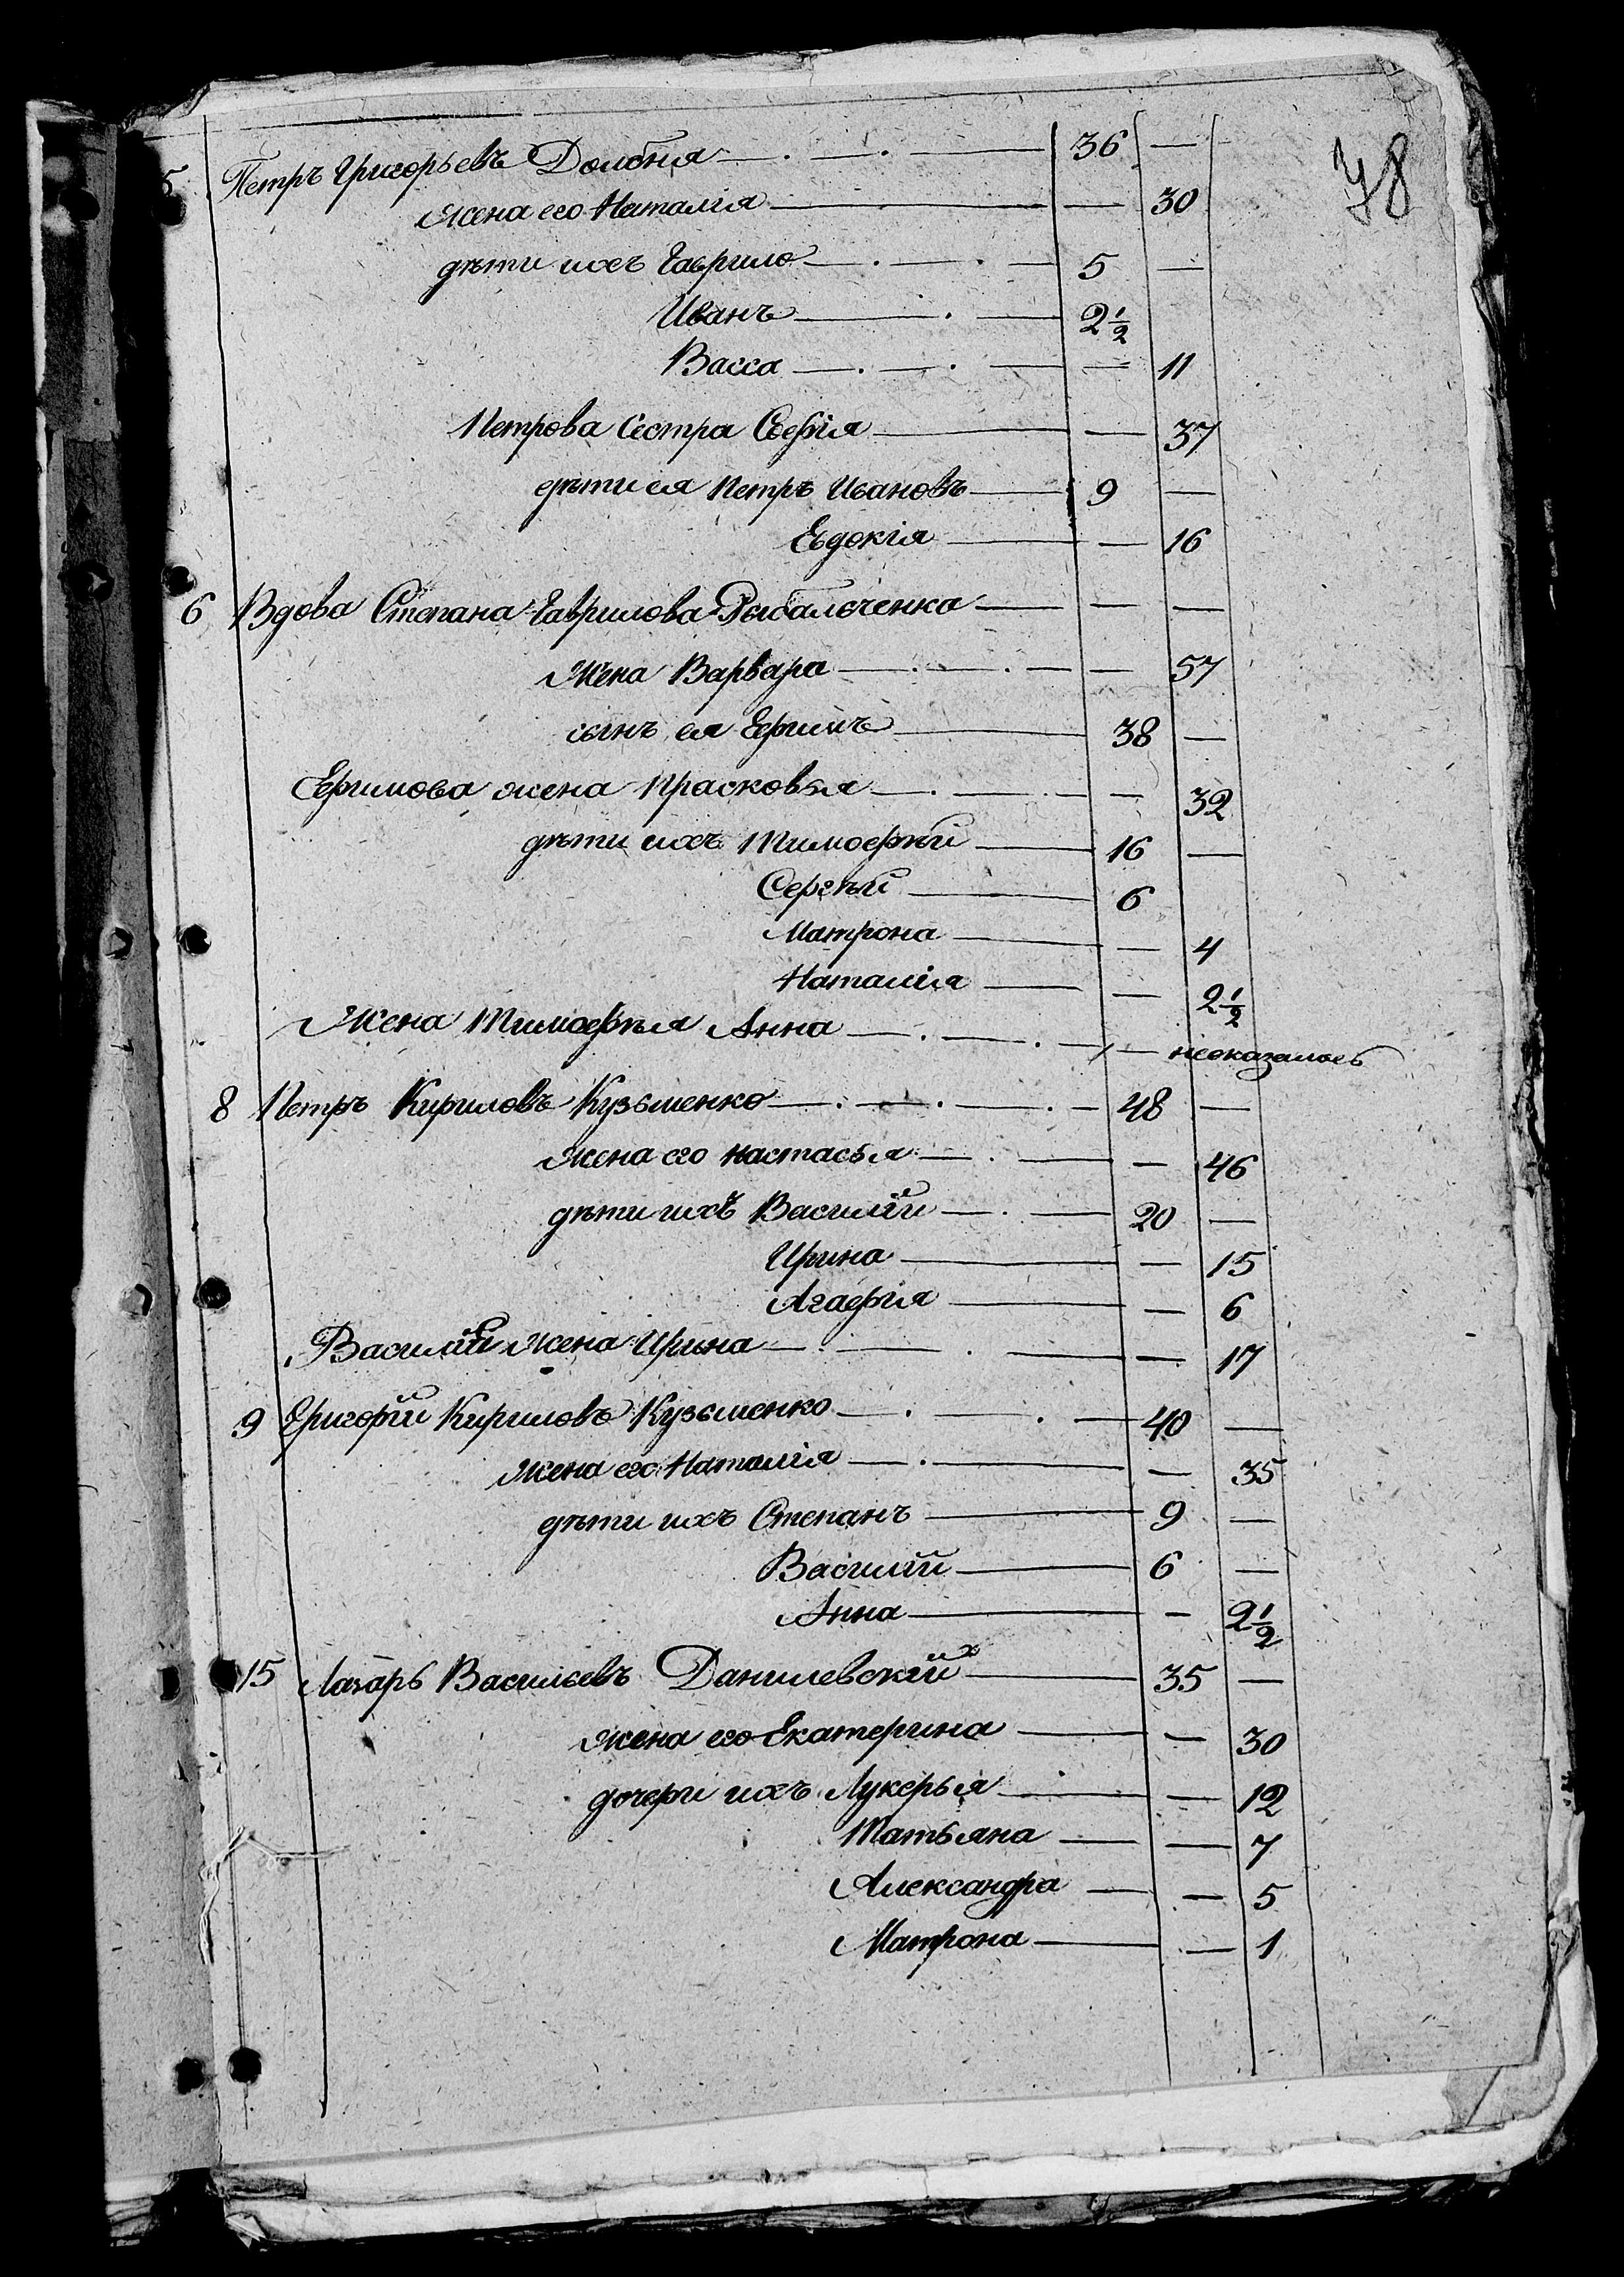 78
5 Петръ Григорьевъ Долбня — . — . — 36 —
Жена его Наталія — — 30
дѣти ихъ Гаврило — . — . — 5 —
Иванъ — . — 2 1/2
Васса — . — . — — 11
Петрова Сестра Софія — — 37
дѣти ея Петръ Ивановъ — 9 —
Евдокія — — 16
6 Вдова Степана Гаврилова Рыбальченка — — —
Жена Варвара — . — . — — 57
сынъ ея Ефимъ — 38 —
Ефимова жена Прасковья — . — . — 32
дѣти ихъ Тимофѣй — 16 —
Сергѣй — 6
Матрона — — 4
Наталія — — 2 1/2
Жена Тимофѣя Анна — . — . — — неоказалась
8 Петръ Кириловъ Кузьменко — . — . — . — 48 —
Жена его Настасья — . — — 46
дѣти ихъ Василій — . — 20 —
Ирина — — 15
Агафія — — 6
Василія жена Ирина — . — . — — 17
9 Григорій Кириловъ Кузьменко — . — . — 40 —
Жена его Наталія — . — — 35
дѣти ихъ Степанъ — 9 —
Василій — 6 —
Анна — — 2 1/2
15 Лазарь Васильевъ Данилевскій х — 35 —
жена его Екатерина — — 30
дочери ихъ Лукерья — — 12
Татьяна — — 7
Александра — — 5
Матрона — — 1